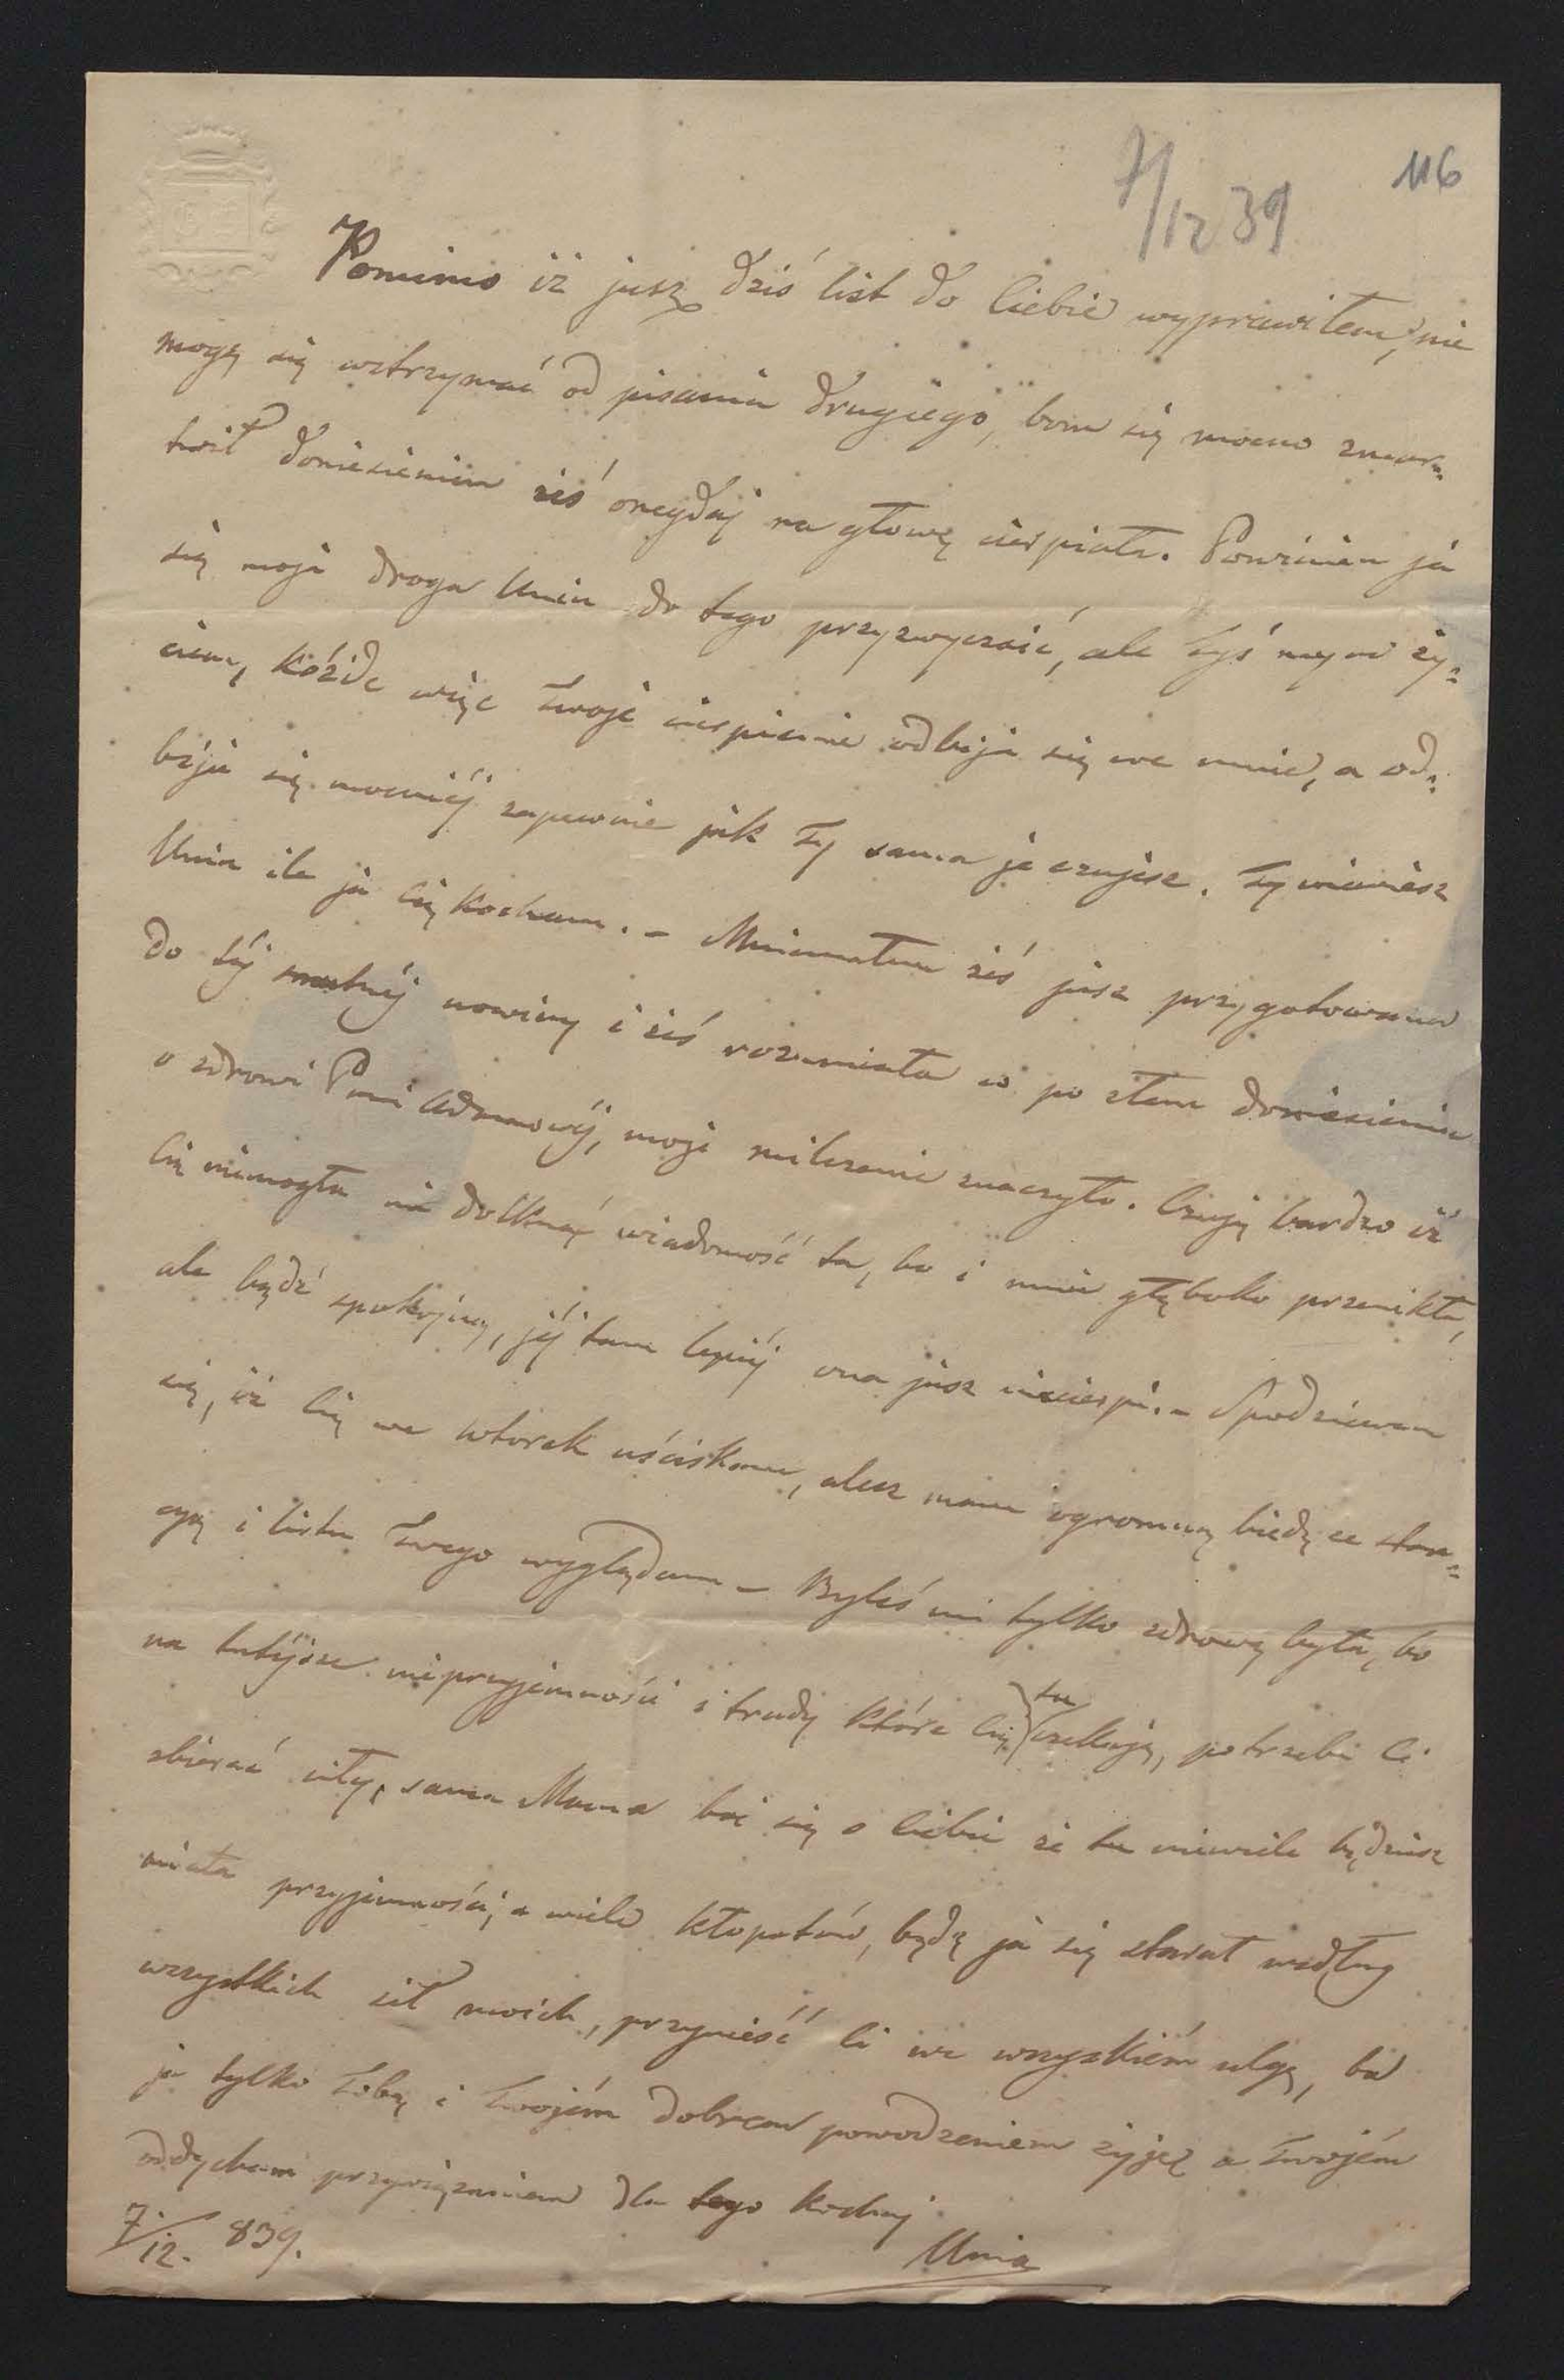 7/12 39
116
Pomimo iż jusz dziś list do Ciebie wyprawiłem, nie
mogę się wstrzymać od pisania drugiego, bom się mocno zmar=
twił doniesieniem żeś onegdaj na głowę cierpiała. Powinien ja
się moja droga Unia do tego przyzwyczaić, ale Tyś mym ży=
ciem, kóżde więc Twoje cierpienie odbija się we mnie, a od=
bija się mocniéj zapewnie jak Ty sama je czujesz. Ty wiewiesz
Unia ile ja Cię kocham. – Mniemałem żeś jusz przygotowana
do téj smutnéj nowiny i żeś rozumiała co po złem doniesieniu
o zdrowi Pani Adamowéj, moje milczenie znaczyło. Czuję bardzo iż
Cię niemogła nie dotknąć wiadomość ta, bo i mnie głęboko przenikła,
ale bądź spokojną, jéj tam lepiéj ona jusz niecierpi. – Spodziewam
się, iż Cię we wtorek uściskam, alesz mam ogromną biedę ze stan=
cyą i listu Twego wyglądam – Byleś mi tylko zdrową była, bo
na tutéjsze nieprzyjemności i trudy które Cię tu czekają, potrzeba Ci
zbierać siły, sama Mama boi się o Ciebie że tu niewiele będziesz
miała przyjemności, a wiele kłopotów, będę ja się starał według
wszystkich sił moich, przynieść Ci we wszyskiém ulgę, bo
ja tylko Tobą i Twojém dobrem powodzeniem żyję a Twojém
oddycham przywiązaniem dla tego kochaj
Unia
7/12. 839.